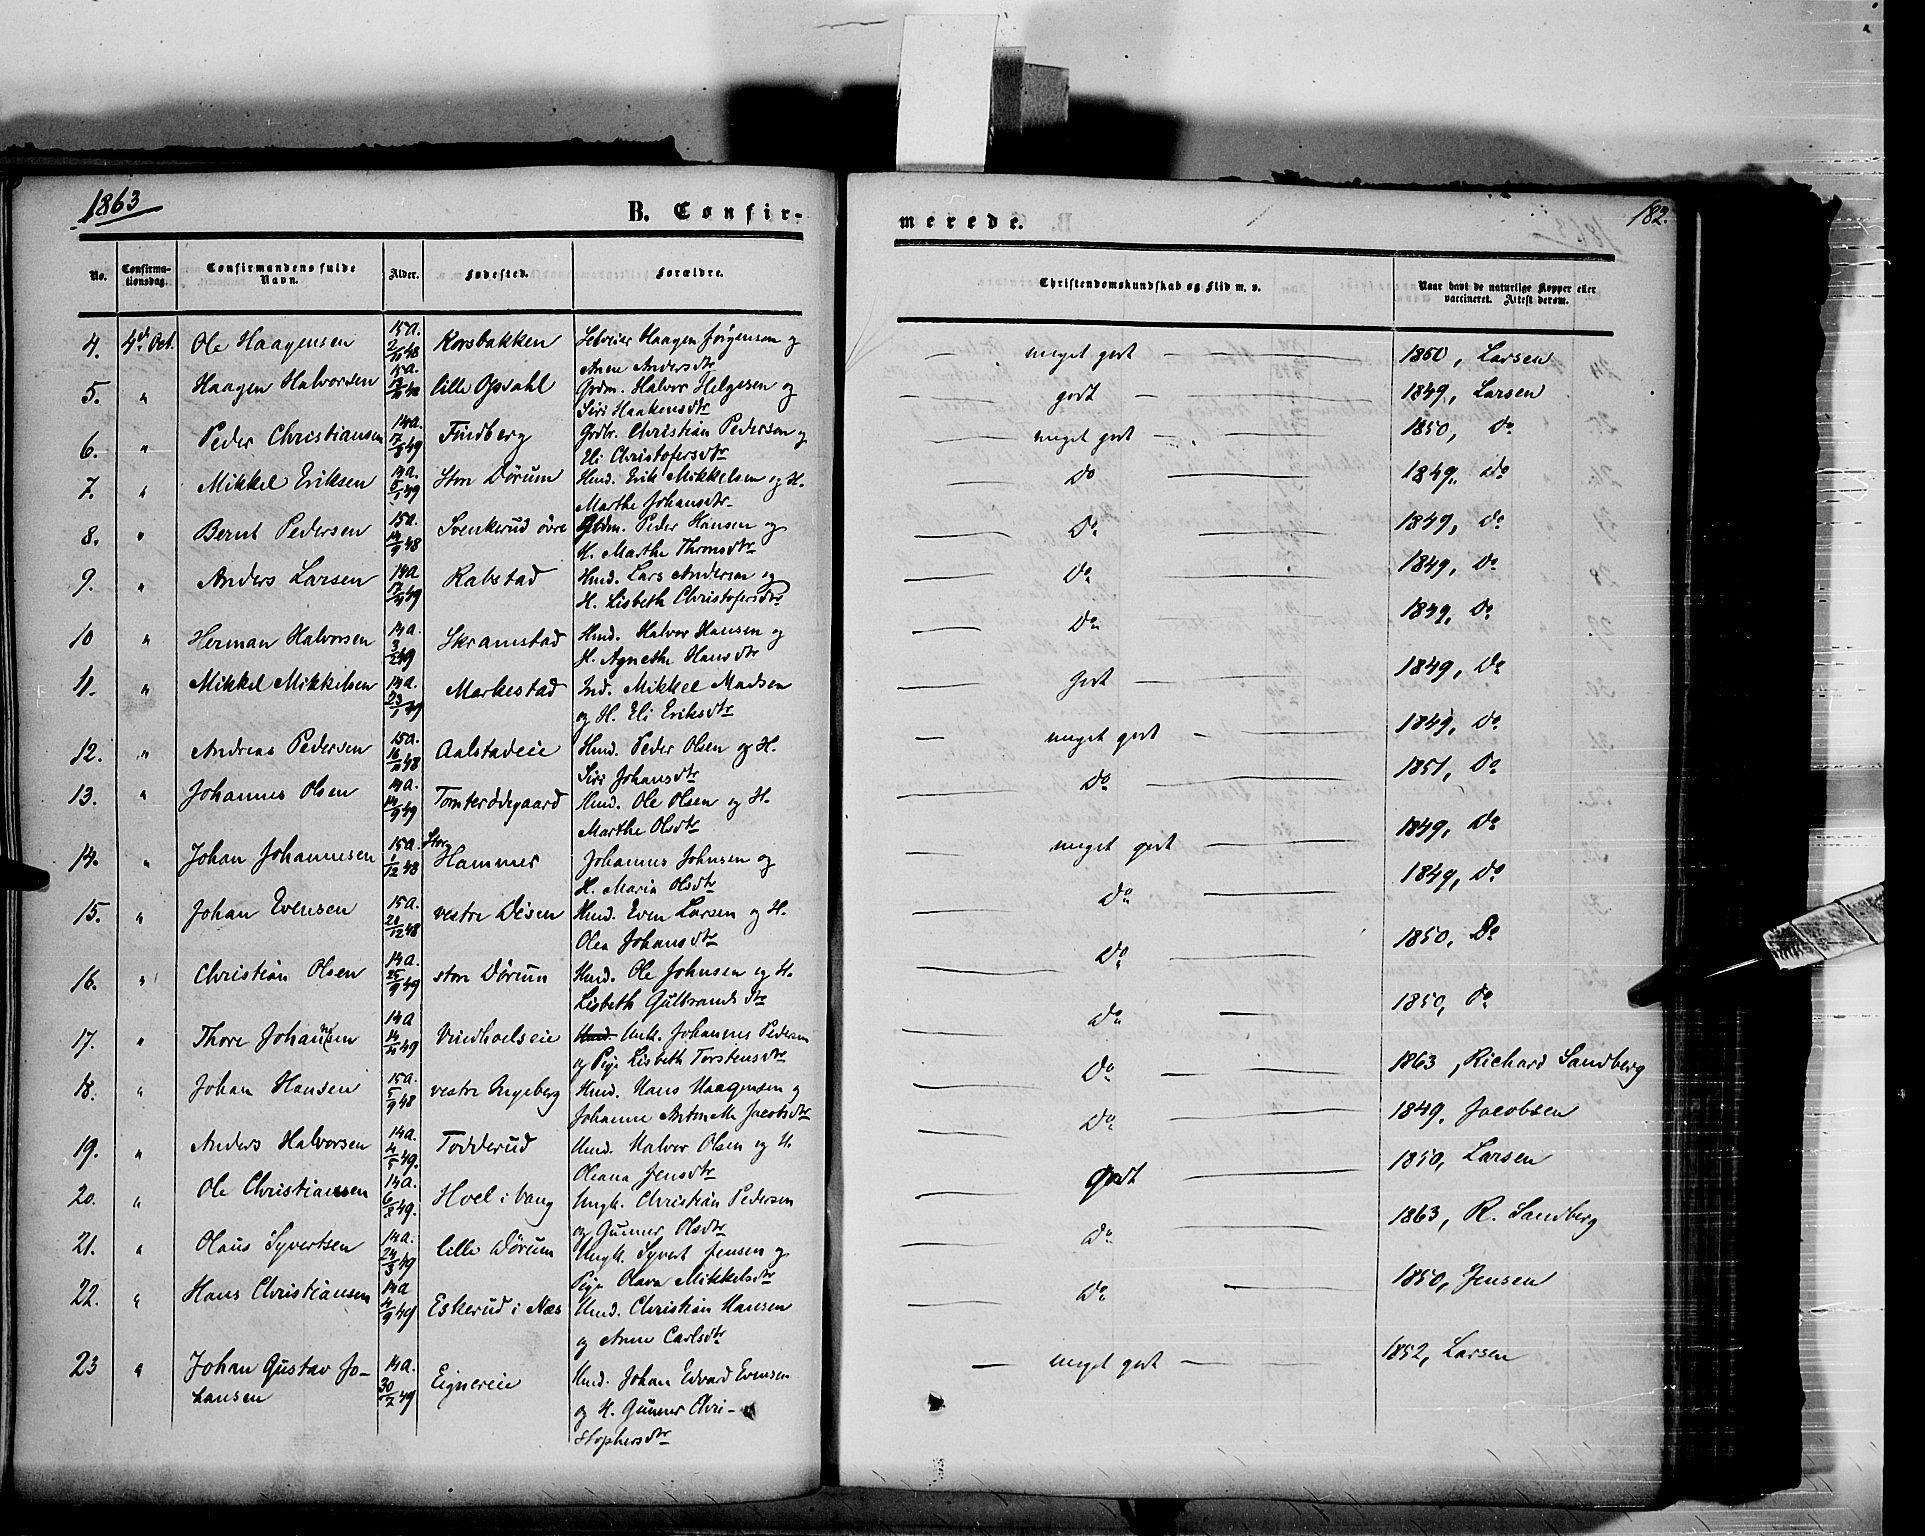 1863
B. Confir-
merede.
182.
No.
Confirma-
tionsdag.
Confirmandens fulde
Navn.
Alder.
Fødested.
Forældre.
Christendomskundskab og Flid m. v.
Naar havt de naturlige Kopper eller
vaccineret. Attest derom.
4. 4d. Oct. Ole Haagensen 15 a. 2/10 48 Korsbakken Haagen Jørgensen og
Anne Andersdtr
meget godt 1850, Larsen
5. " Haagen Halvorsen 15 a. lille Opsahl Grdm. Halvor Helgesen og
Siri Haakensdtr
godt 1849, Larsen
6. " Peder Christiansen 14 a. 17/8 49 Findberg Grdbr. Christian Pedersen og
Eli Christofersdtr
meget godt 1850, do
7. " Mikkel Eriksen 14 a. 5/1 49 Store Dørum Hmd. Erik Mikkelsen og H.
Marthe Johansdtr
do 1849, do
8. " Bernt Pedersen 15 a. 14/9 48 Svenkerud øvre Grdm. Peder Hansen og
H. Marthe Thronsdtr
Do 1849, Do
9. " Anders Larsen 14 a 49 Rabstad Hmd. Lars Andersen og
H. Lisbeth Christofersdtr
Do 1849, Do
10 " Herman Halvorsen 14 a. 3/2 49 Skramstad Hmd. Halvor Hansen og
H. Agnethe Hansdtr
Do 1849, Do
11. " Mikkel Mikkelsen 14 a. 23/1 49 Markestad Ind. Mikkel Madsen
og H. Eli Eriksdtr
godt 1849, Do
12. " Andreas Pedersen 15 a. 48 Aalstadeie Hmd. Peder Olsen og H.
Siri Johansdtr
meget godt 1849, Do
13. " Johannes Olsen 14 a. 14/9 49 Tomterødegaard Hmd. Ole Olsen og H.
Marthe Olsdtr
do 1851, Do
14. " Johan Johannesen 15 a. 1/12 48 Store
Hammer Johannes Johnsen og
H. Maria Olsdtr
meget godt 1849, Do
15. " Johan Evensen 15 a. 20/12 48 vestre Deisen Hmd. Even Larsen og H.
Olea Johansdtr
do 1849, Do
16. " Christian Olsen 14 a. 25/9 49 store Dørum Hmd. Ole Johnsen og H.
Lisbeth Gulbrandsdtr
Do 1850, Do
17. " Thore Johannesen 14 a 49 Vindhoelseie Hmd. Unk. Johannes Pedersen
og Pige Lisbeth Torstensdtr
do 1850, do
18. " Johan Hansen 15 a. 5/9 48 vestre Ingeberg Hmd. Hans Haagensen og
Johanne Antonette Jacobsdtr
Do 1863, Richard Sandberg
19. " Anders Halvorsen 14 a. 4/5 49. Todderud Hmd. Halvor Olsen og H
Oleana Jensdtr
Do 1849, Jacobsen
20. " Ole Christiansen 14 a. 6/8 49. Hoel i Vang Ungk. Christian Pedersen
og Gunner Olsdtr
Godt 1850, Larsen
21. " Olaus Syvertsen 14 a. 24/3 49 lille Dørum Ungk. Syvert Jensen og
Pige Olava Mikkelsdtr
do 1863, R. Sandberg
22. " Hans Christiansen 14 a 4/9 49 Eskerud i Næs Hmd. Christian Hansen
og Anne Carlsdtr
Do 1850, Jensen
23 " Johan Gustav Jo-
hansen 14 a. 30/7 49 Eignereie Hmd. Johan Edvard Evensen
og H. Gunner Chri-
stophersdtr
meget godt 1852, Larsen